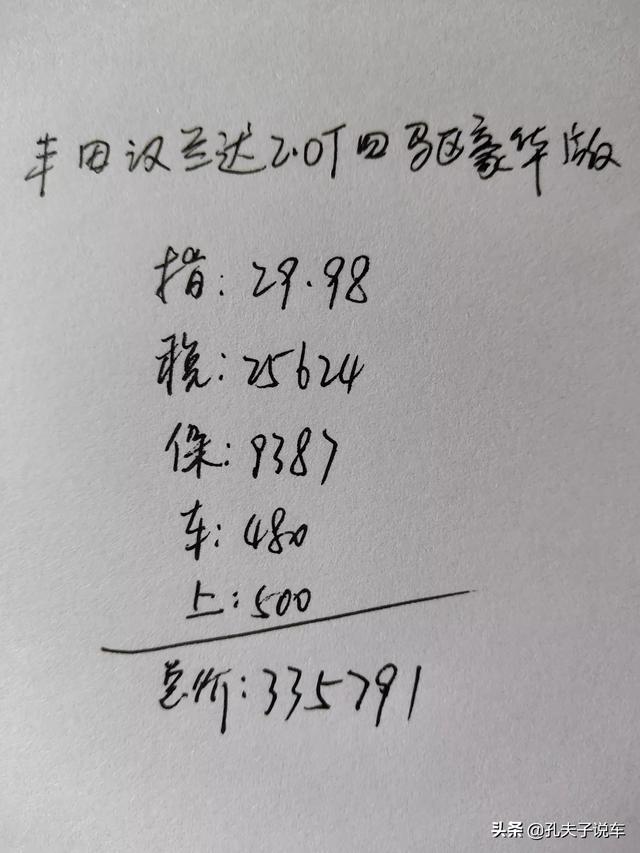 丰田汉兰达2.0T四驱豪华版
指:29.98
税:25624
保:9387
车:480
上:500
总价:335791
头条 @孔夫子说车